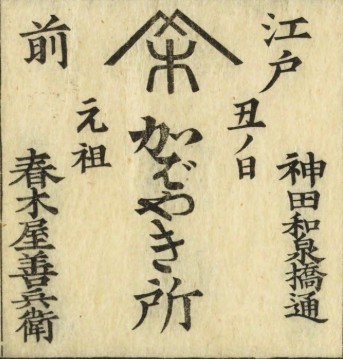 江戸
前
丑ノ日
元祖
加ばやき所
神田和泉橋通
春木屋善兵衛